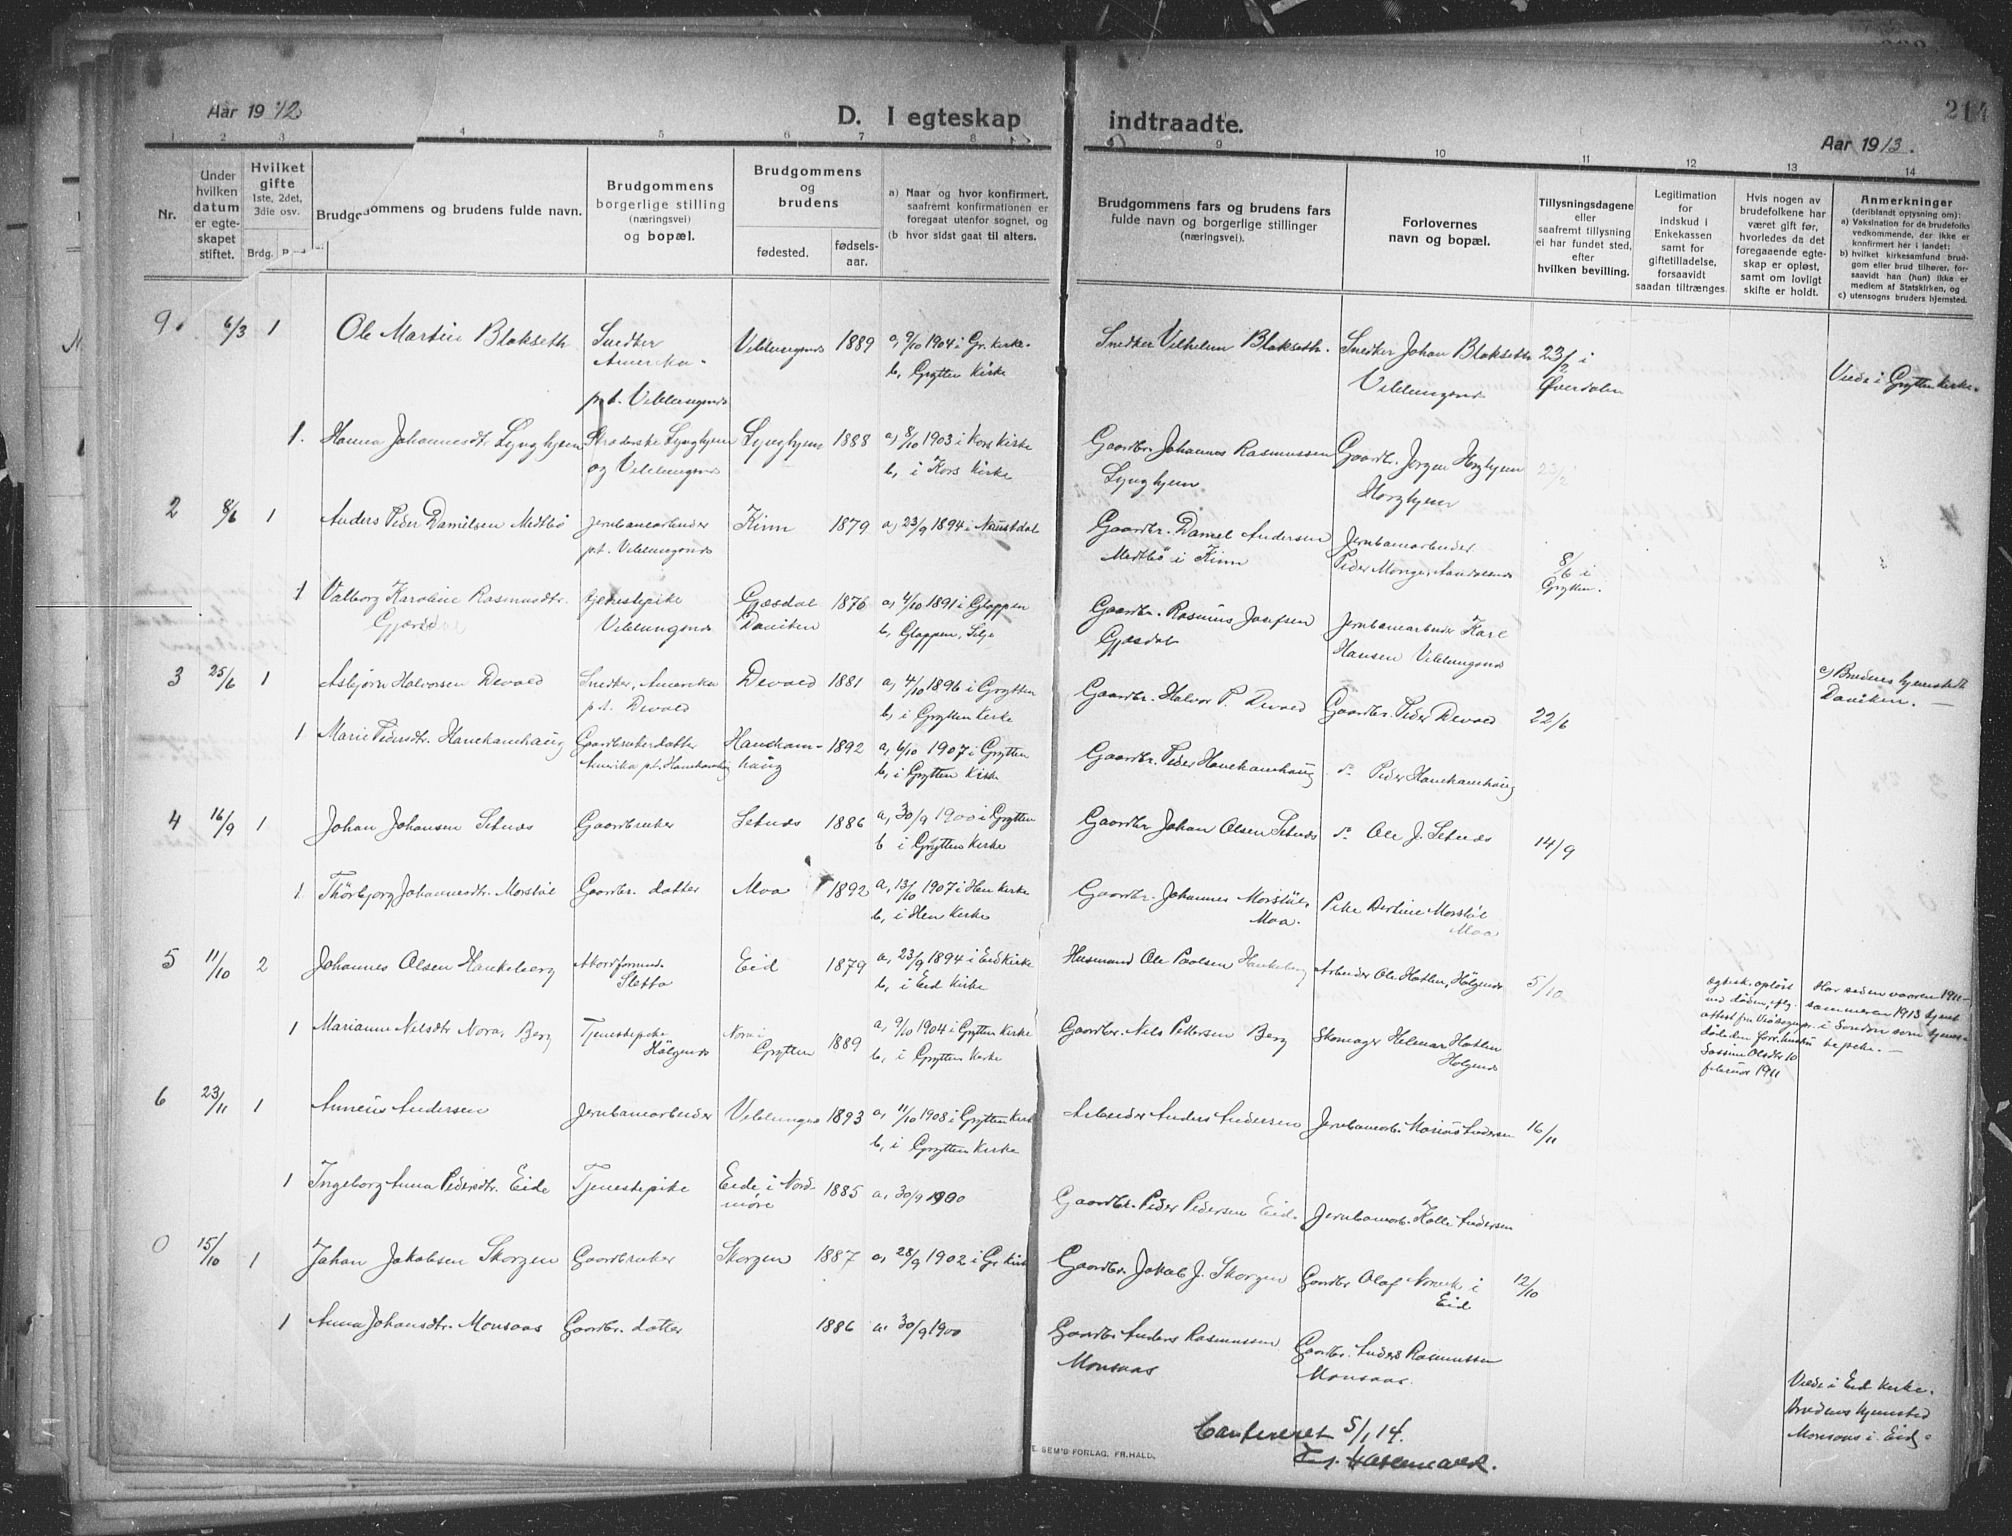 214
Aar 1912
D. I egteskap indtraadte.
Aar 1913.
1 2 3 4 5 6 7 8 9 10 11 12 13 14
Nr.
Under hvilken datum er egteskapet stiftet.
Hvilket gifte 1ste, 2det, 3die osv.
Brdg.
Brudgommens og brudens fulde navn.
Brudgommens borgerlige stilling (næringsvei) og bopæl.
Brudgommens og brudens
fødested.
fødselsaar.
a) Naar og hvor konfirmert, saafremt konfirmationen er foregaat utenfor sognet, og
(b hvor sidst gaat til alters.
Brudgommens fars og brudens fars fulde navn og borgerlige stillinger (næringsvei).
Forlovernes navn og bopæl.
Tillysningsdagene eller saafremt tillysning ei har fundet sted, efter hvilken bevilling.
Legitimation for indskud i Enkekassen samt for giftetilladelse, forsaavidt saadan tiltrænges.
Hvis nogen av brudefolkene har været gift før, hvorledes da det foregaaende egteskap er opløst, samt om lovligt skifte er holdt.
Anmerkninger (deriblandt oplysning om): a) Vaksination for de brudefolks vedkommende, der ikke er konfirmert her i landet; b) hvilket kirkesamfund brudgom eller brud tilhører, forsaavidt han (hun) ikke er medlem af Statskirken, og c) utensogns bruders hjemsted.
9. 6/3 1 Ole Martin Blakseth Snedker Amerika p.t. Veblungsnes Veblungsnes 1889 a, 9/10 1904 i Gr. Kirke. b, Grytten Kirke Snedker Vilhelm Blakseth. Snedker Johan Blakseth Veblungsnes 23/2 i Øverdalen Viede i Grytten Kirke.
1. Hanna Johannesdt. Lynghjem Lynghjem og Veblungsnes Lynghjem 1888 a, 8/10 1903 i Kors Kirke b, i Kors Kirke Gaardbr. Johannes Rasmussen Lynghjem Gaardbr. Jørgen Horghjem Horghjem 23/2
2 8/6 1 Anders Peder Danielsen Medbø Jernbanearbeider p.t. Veblungsnes Kinn 1879 a, 23/9 1894 i Naustdal Gaardbr. Daniel Andersen Medbø i Kinn Jernbanearbeider Peder Monge, Aandalsnes 8/6 i Grytten.
1 Valborg Karoline Rasmusdtr. Gjæsdal Tjenestepike Veblungsnes Gjæsdal Daviken 1876 a, 4/10 1891 i Gloppen b, Gloppen, Selje Gaardbr. Rasmus Josefsen Gjæsdal Jernbanearbeider Karl Hansen Veblungsnes
3 25/6 1 Asbjørn Halvorsen Devold Snedker, Amerika p.t. Devold Devold 1881 a, 4/10 1896 i Grytten b, i Grytten Kirke Gaardbr. Halvor P. Devold Gaardbr. Peder Devold 22/6 c) Brudens hjemsted Daviken.
1 Marie Pedersdtr. Hanekamhaug Gaardbrukerdatter Amerika p.t. Hanekamhaug Hanekamhaug 1892 a, 6/10 1907 i Grytten b, i Grytten Kirke Gaardbr. Peder Hanekamhaug do Peder Hanekamhaug
4 16/9 1 Johan Johansen Setnes Gaardbruker Setnes 1886 a, 30/9 1900 i Grytten b i Grytten Kirke Gaardbr Johan Olsen Setnes do Ole J. Setnes 14/9
1. Thorbjørg Johannesdtr. Morstøl Gaardbr. datter Moa 1892 a, 13/10 1907 i Hen Kirke b, i Hen Kirke Gaardbr. Johannes Morstøl, Moa. Pike Bertine Morstøl Moa
5 11/10 2 Johannes Olsen Hankeberg Akordformand Sletta Eid 1879 a, 23/9 1894 i Eid Kirke b, i Eid Kirke Husmand Ole Paulsen Hankeberg Arbeider Ole Hatlen, Hølgenes 5/10 egtesk. opløst ved døden, flg. attest fra Vestnes døds forr. hustru Olsdtr 10 februar 1911 Har siden vaaren 1911 sommeren 1913 tjent i London som tjenestepike.
1 Marianne Nilsdtr Nora, Berg Tjenestepike Hølgenes Nora i Grytten 1889 a, 9/10 1904 i Grytten Kirke b, i Grytten Kirke Gaardbr. Nils Pettersen Berg Skomager Helmar Hatlen Holgenes
6 23/11 1 Anneus Andersen Jernbanearbeider Veblungsnes 1893 a, 11/10 1908 i Grytten Kirke b, i Grytten Kirke Arbeider Anders Andersen Jernbanearb. Marius Andersen 16/11
1 Ingeborg Anna Pedersdtr. Eide Tjenestepike Eide i Nordmøre 1885 a, 30/9 1900 Gaardbr. Peder Pedersen Eid. Jernbanearb. Kalle Andersen
0 15/10 1 Johan Jakobsen Skorgen Gaardbruker Skorgen 1887 a, 28/9 1902 i Gr Kirke Gaardbr. Jakob J. Skorgen Gaardbr Olaf i Eid 12/10
1 Anna Johansdtr. Monsaas Gaardbr. datter 1886 a. 30/9 1900 Gaardbr Anders Rasmussen Monsaas Gaardbr. Anders Rasmussen Monsaas. Viede i Eid Kirke. Brudens hjemsted Monsaas i Eid.
Confereret 5/1 14.
E. SEM'S FORLAG, FR.HALD.